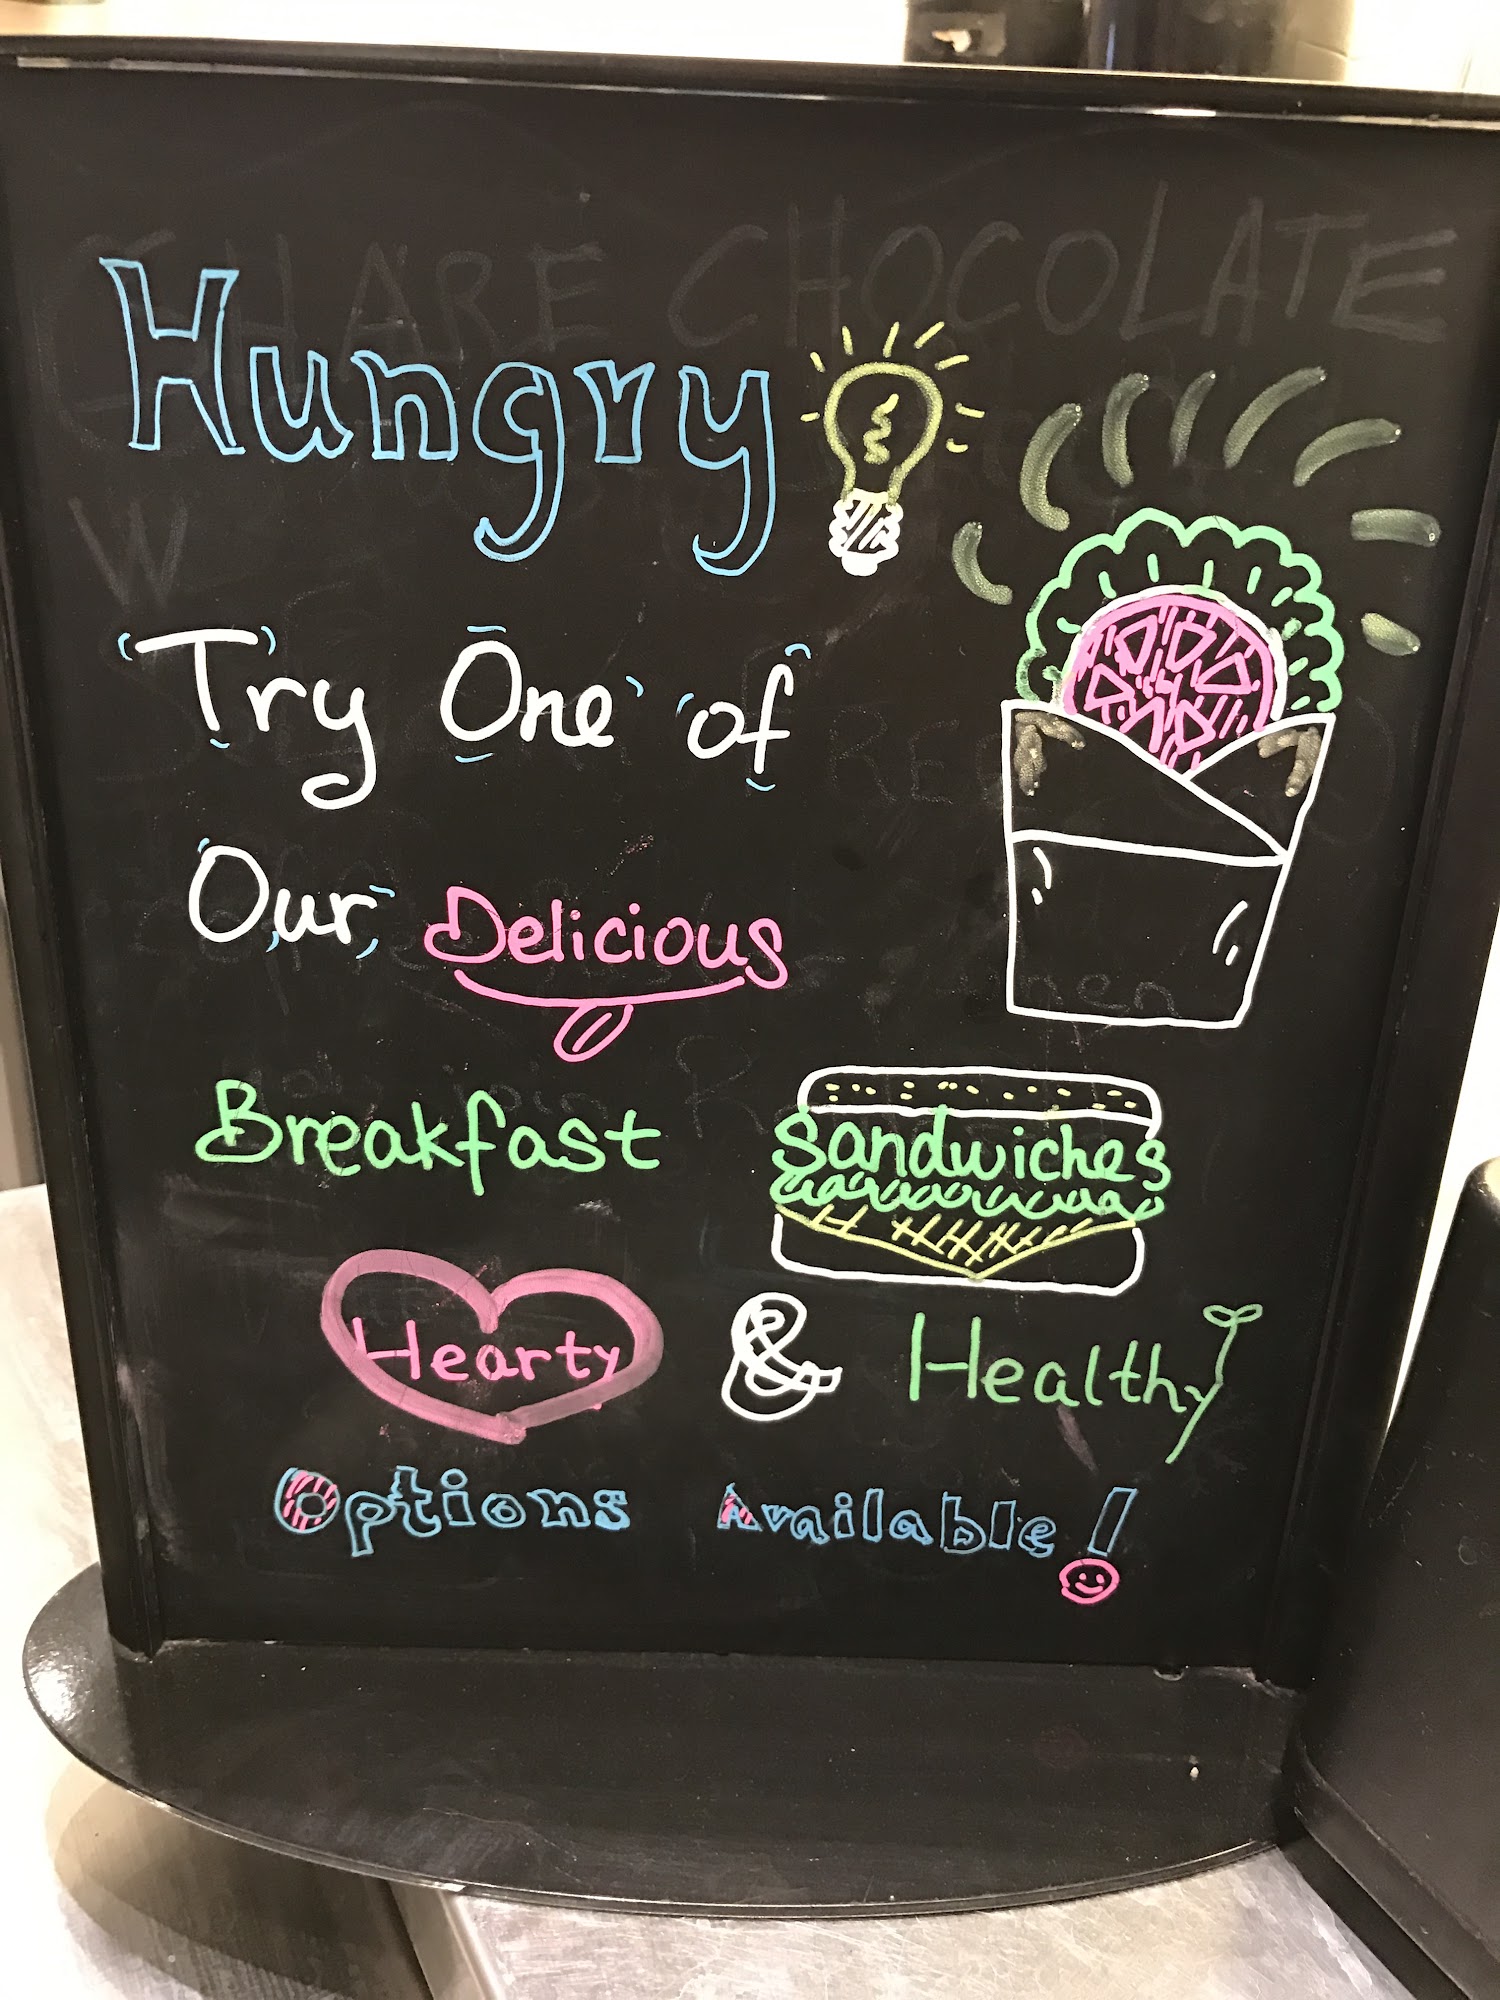 SHARE CHOCOLATE
Hungry
Try One of
Our Delicious
Breakfast Sandwiches
Hearty & Healthy
Options Available!